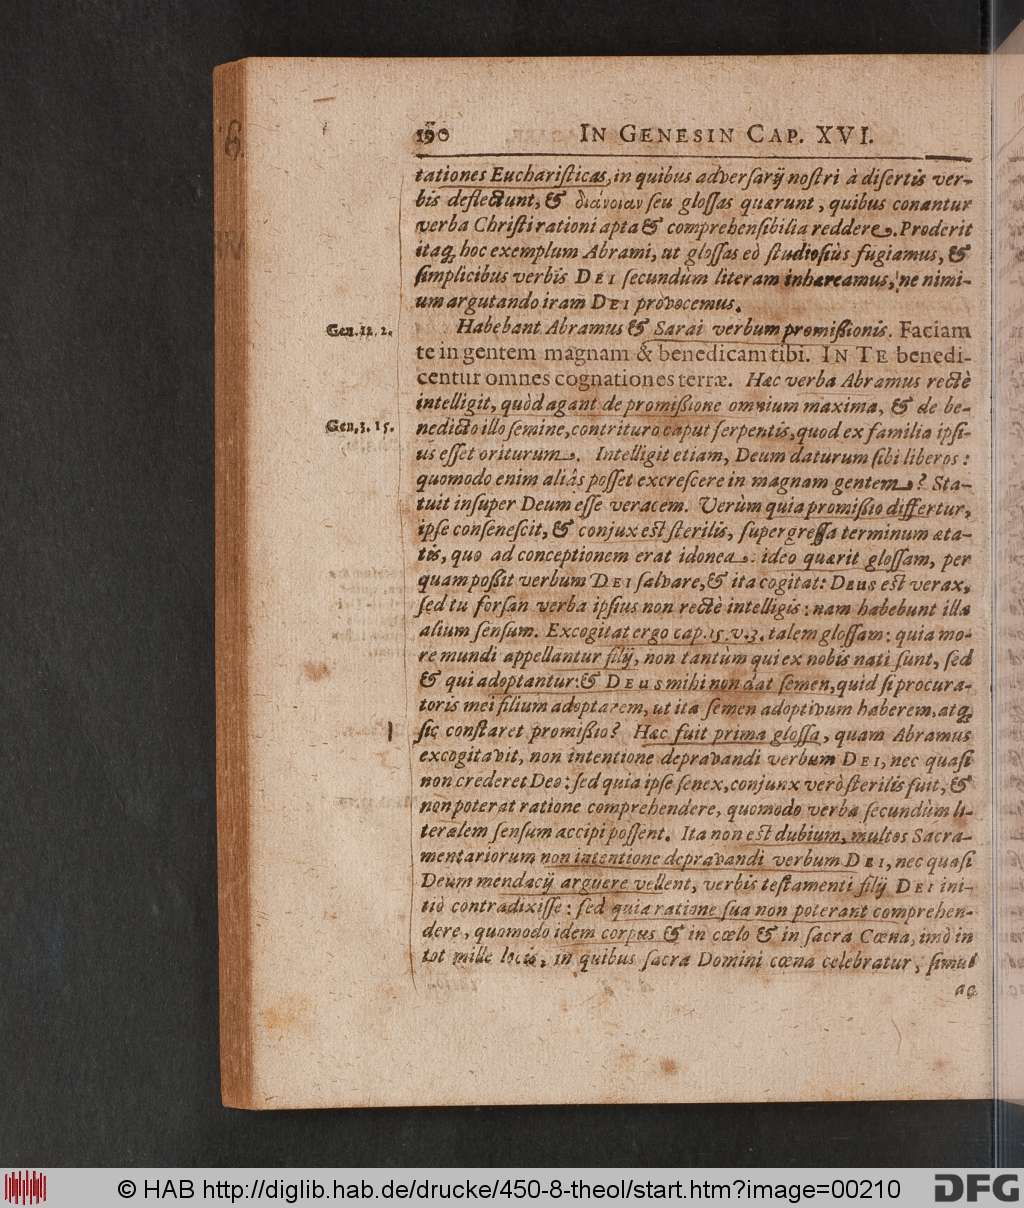 190 IN GENESIN CAP. XVI.
tationes Eucharisticas, in quibus adversarij nostri à disertis ver-
bis deflectunt, & διάνοιαν seu glossas quærunt, quibus conantur
verba Christi rationi apta & comprehensibilia reddere. Proderit
itaq; hoc exemplum Abrami, ut glossas eò studiosiùs fugiamus, &
simplicibus verbis DEI secundùm literam inhæreamus, ne nimi-
um argutando iram DEI provocemus.
Gen. 12. 2.
Habebant Abramus & Sarai verbum promißionis. Faciam
te in gentem magnam & benedicam tibi. IN TE benedi-
centur omnes cognationes terræ. Hæc verba Abramus rectè
intelligit, quòd agant de promißione omnium maxima, & de be-
Gen. 3. 15.
nedicto illo semine, contrituro caput serpentis, quod ex familia ipsi-
us esset oriturum. Intelligit etiam, Deum daturum sibi liberos:
quomodo enim aliàs posset excrescere in magnam gentem? Sta-
tuit insuper Deum esse veracem. Verùm quia promißio differtur,
ipse consenescit, & conjux est sterilis, supergressa terminum æta-
tis, quo ad conceptionem erat idonea: ideo quærit glossam, per
quam poßit verbum DEI salvare, & ita cogitat: DEUS est verax,
sed tu forsan verba ipsius non rectè intelligis: nam habebunt illa
alium sensum. Excogitat ergo cap. 15. v. 3. talem glossam: quia mo-
re mundi appellantur filij, non tantùm qui ex nobis nati sunt, sed
& qui adoptantur: & DEUS mihi non dat semen, quid si procura-
toris mei filium adoptarem, ut ita semen adoptivum haberem, atq;
sic constaret promißio? Hæc fuit prima glossa, quam Abramus
excogitavit, non intentione depravandi verbum DEI, nec quasi
non crederet Deo: sed quia ipse senex, conjunx verò sterilis fuit, &
non poterat ratione comprehendere, quomodo verba secundùm li-
teralem sensum accipi possent. Ita non est dubium, multos Sacra-
mentariorum non intentione depravandi verbum DEI, nec quasi
Deum mendacij arguere vellent, verbis testamenti filij DEI ini-
tiò contradixisse: sed quia ratione sua non poterant comprehen-
dere, quomodo idem corpus & in cœlo & in sacra Cœna, imò in
tot mille locis, in quibus sacra Domini cœna celebratur, simul
ac
© HAB http://diglib.hab.de/drucke/450-8-theol/start.htm?image=00210
DFG